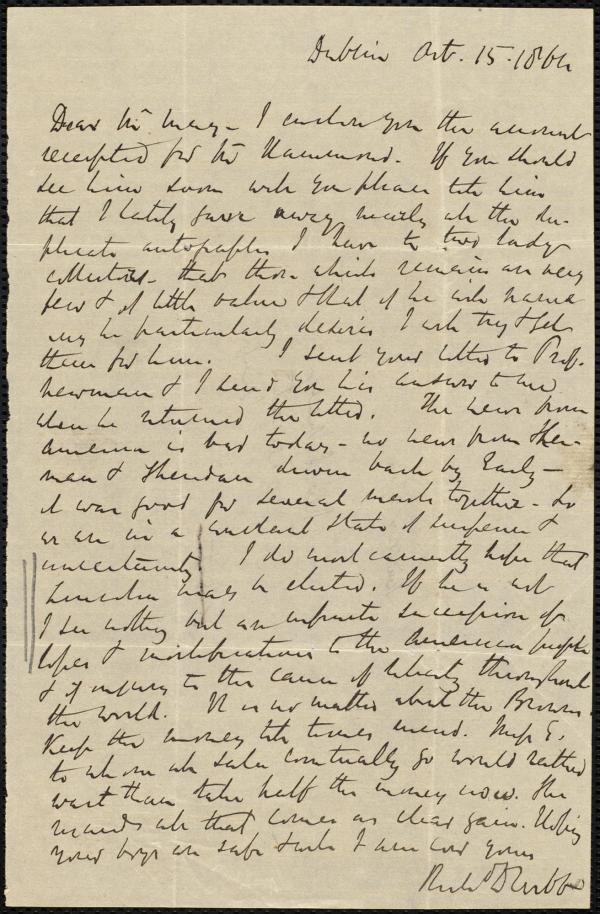 Dublin Oct. 15. 1864
Dear Mr. May - I enclose you the account
receipted for Mr. Hammond. If you should
see him soon will you please tell him
that I lately gave away nearly all the du-
plicate autographs I have to two lady
collectors - that those which remain are very
few & of little value & that if he will name
any he particularly desires I will try & get
them for him. I sent your letter to Prof.
Newman & I send you his answer to me
when he returned the letter. The news from
America is bad today - no news from Sher-
man & Sheridan driven back by Early -
it was good for several weeks together - So
we are in a constant state of suspense &
uncertainty. I do most earnestly hope that
Lincoln may be elected. If he is not
I see nothing but an infinite succession of
& mortifications to the American people
& of injury to the cause of liberty throughout
the world. It is no matter about the Browns.
Keep the money till times mend. Miss E.
to whom all sales eventually go would rather
wait than take half the money now. She
regards all that comes as clear gain. Hoping
your boys are safe & well I am ever yours
Richd. D. Webb